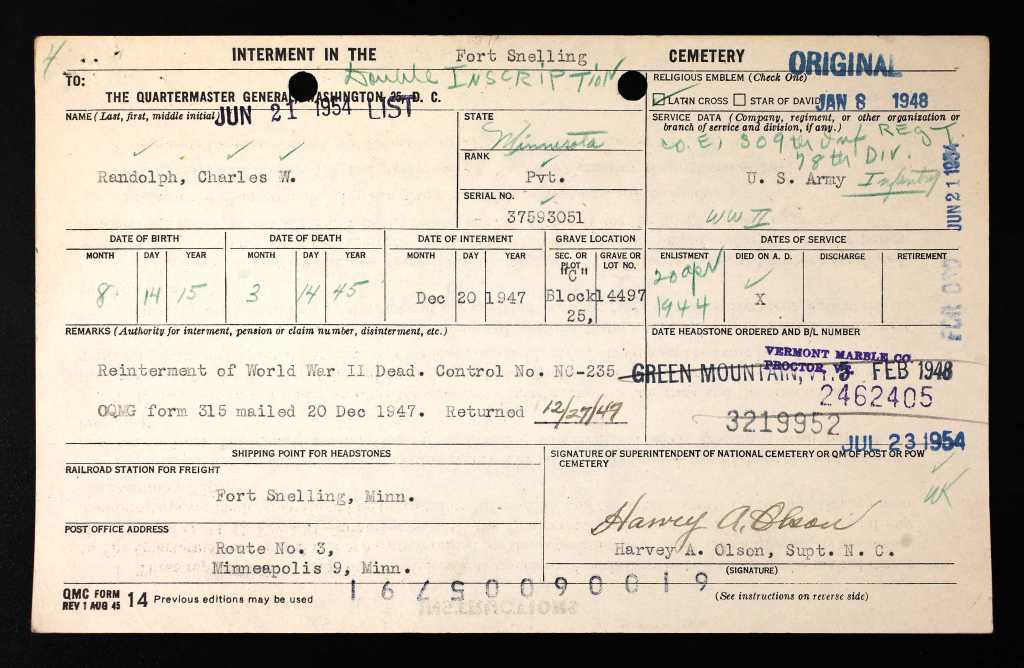 INTERMENT IN THE Fort Snelling CEMETERY
ORIGINAL
TO:
Double INSCRIPTION
THE QUARTERMASTER GENERAL, WASHINGTON 25, D. C.
JUN 21 1954 LIST
RELIGIOUS EMBLEM (Check One)
LATIN CROSS STAR OF DAVID
JAN 8 1948
NAME (Last, first, middle initial)
Randolph, Charles W.
STATE
Minnesota
RANK
Pvt.
SERIAL NO.
37593051
SERVICE DATA (Company, regiment, or other organization or
branch of service and division, if any.)
Co. E, 309th Inf Regt
78th Div.
U. S. Army Infantry
WW II
JUN 21 1954
DATE OF BIRTH DATE OF DEATH DATE OF INTERMENT GRAVE LOCATION DATES OF SERVICE
MONTH DAY YEAR MONTH DAY YEAR MONTH DAY YEAR SEC. OR PLOT GRAVE OR LOT NO. ENLISTMENT DIED ON A. D. DISCHARGE RETIREMENT
8 14 15 3 14 45 Dec 20 1947 "C" Block 25, 14497 20 Apr 1944 X
REMARKS (Authority for interment, pension or claim number, disinterment, etc.)
Reinterment of World War II Dead. Control No. NC-235
OQMG form 315 mailed 20 Dec 1947. Returned 12/27/49
DATE HEADSTONE ORDERED AND B/L NUMBER
VERMONT MARBLE CO.
PROCTOR, VT.
GREEN MOUNTAIN, VT. 5 FEB 1948
2462405
3219952
JUL 23 1954
SHIPPING POINT FOR HEADSTONES
RAILROAD STATION FOR FREIGHT
Fort Snelling, Minn.
POST OFFICE ADDRESS
Route No. 3,
Minneapolis 9, Minn.
SIGNATURE OF SUPERINTENDENT OF NATIONAL CEMETERY OR QM OF POST OR POW
CEMETERY
WK
Harvey A. Olson
Harvey A. Olson, Supt. N. C.
(SIGNATURE)
QMC FORM
REV 1 AUG 45 14 Previous editions may be used
(See instructions on reverse side)